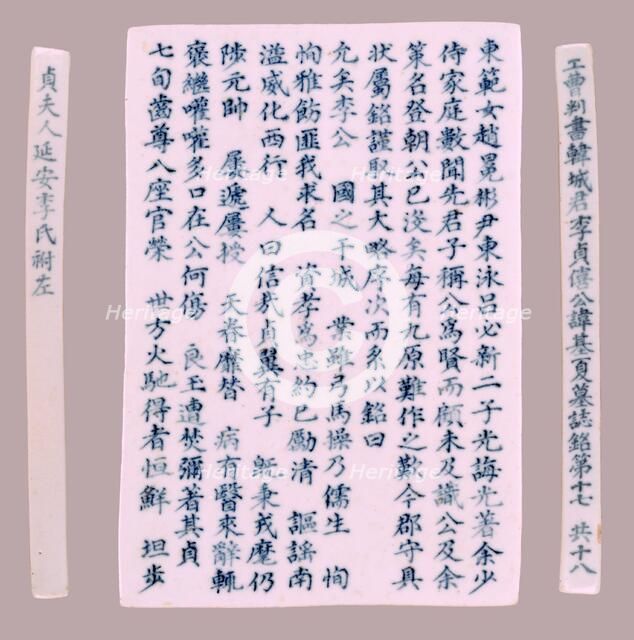 工曹判書韓城君李貞僖公諱基夏墓誌銘第十七 共十八
東範女趙冕彬尹東泳呂必新二子光誨光著余少
侍家庭數聞先君子稱公爲賢而顧未及識公及余
策名登朝公已沒矣每有九原難作之歎今郡守具
狀屬銘謹取其大略序次而系以銘曰
允矣李公 國之干城 業雖弓馬操乃儒生 恂
恂雅飭匪我求名 資孝爲忠約己勵清 謳謠南
溢威化西行 人曰信哉貞翼有子 斬秉戎麾仍
陟元帥 屢遞屢授 天眷靡替 病有醫來辭輒
褒繼嚾嚾多口在公何傷 良玉遭焚彌著其貞
七旬齒尊八座官榮 世方火馳得者恒鮮 坦步
貞夫人延安李氏祔左
Heritage
Heritage
Heritage
Heritage
Heritage
Heritage
C